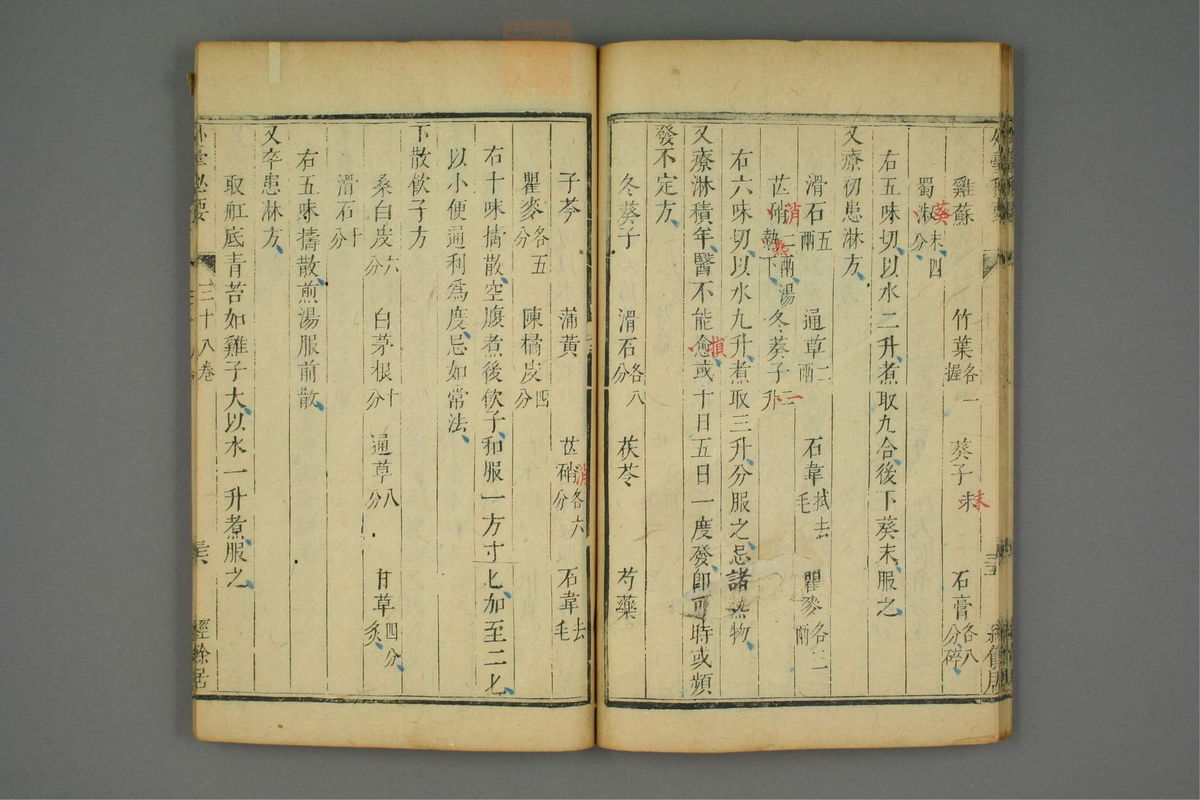 雞蘇 竹葉各一握 葵子末 石膏各八分碎
蜀淑葵末四分
右五味切以水二升煮取九合後下葵末服之
又療初患淋方
滑石五兩 通草二兩 石韋拭去毛 瞿麥各二兩
芒硝消二兩湯熟下 冬葵子二升
右六味切以水九升煮取三升分服之忌諸熱物
又療淋積年醫不能愈或十日五日一度發即可時或頻
發不定方
冬葵子 滑石各八分 茯苓 芍藥
子芩 蒲黃 芒硝消各六分 石韋去毛
瞿麥各五分 陳橘皮四分
右十味擣散空腹煮後飲子和服一方寸匕加至二匕
以小便通利為度忌如常法
下散飲子方
桑白皮六分 白茅根十分 通草八分 甘草四分炙
滑石十分
右五味擣散煎湯服前散
又卒患淋方
取舡底青苔如雞子大以水一升煮服之
外臺秘要 三十八卷 三六 經餘居